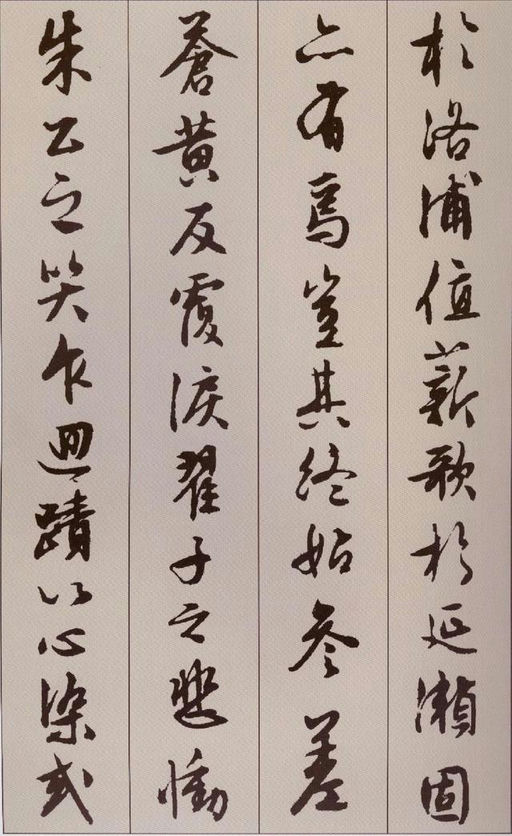 於洛浦值薪歌於延瀨固
亦有焉豈其終始參差
蒼黃反覆淚翟子之悲慟
朱公之哭乍迴蹟以心染或